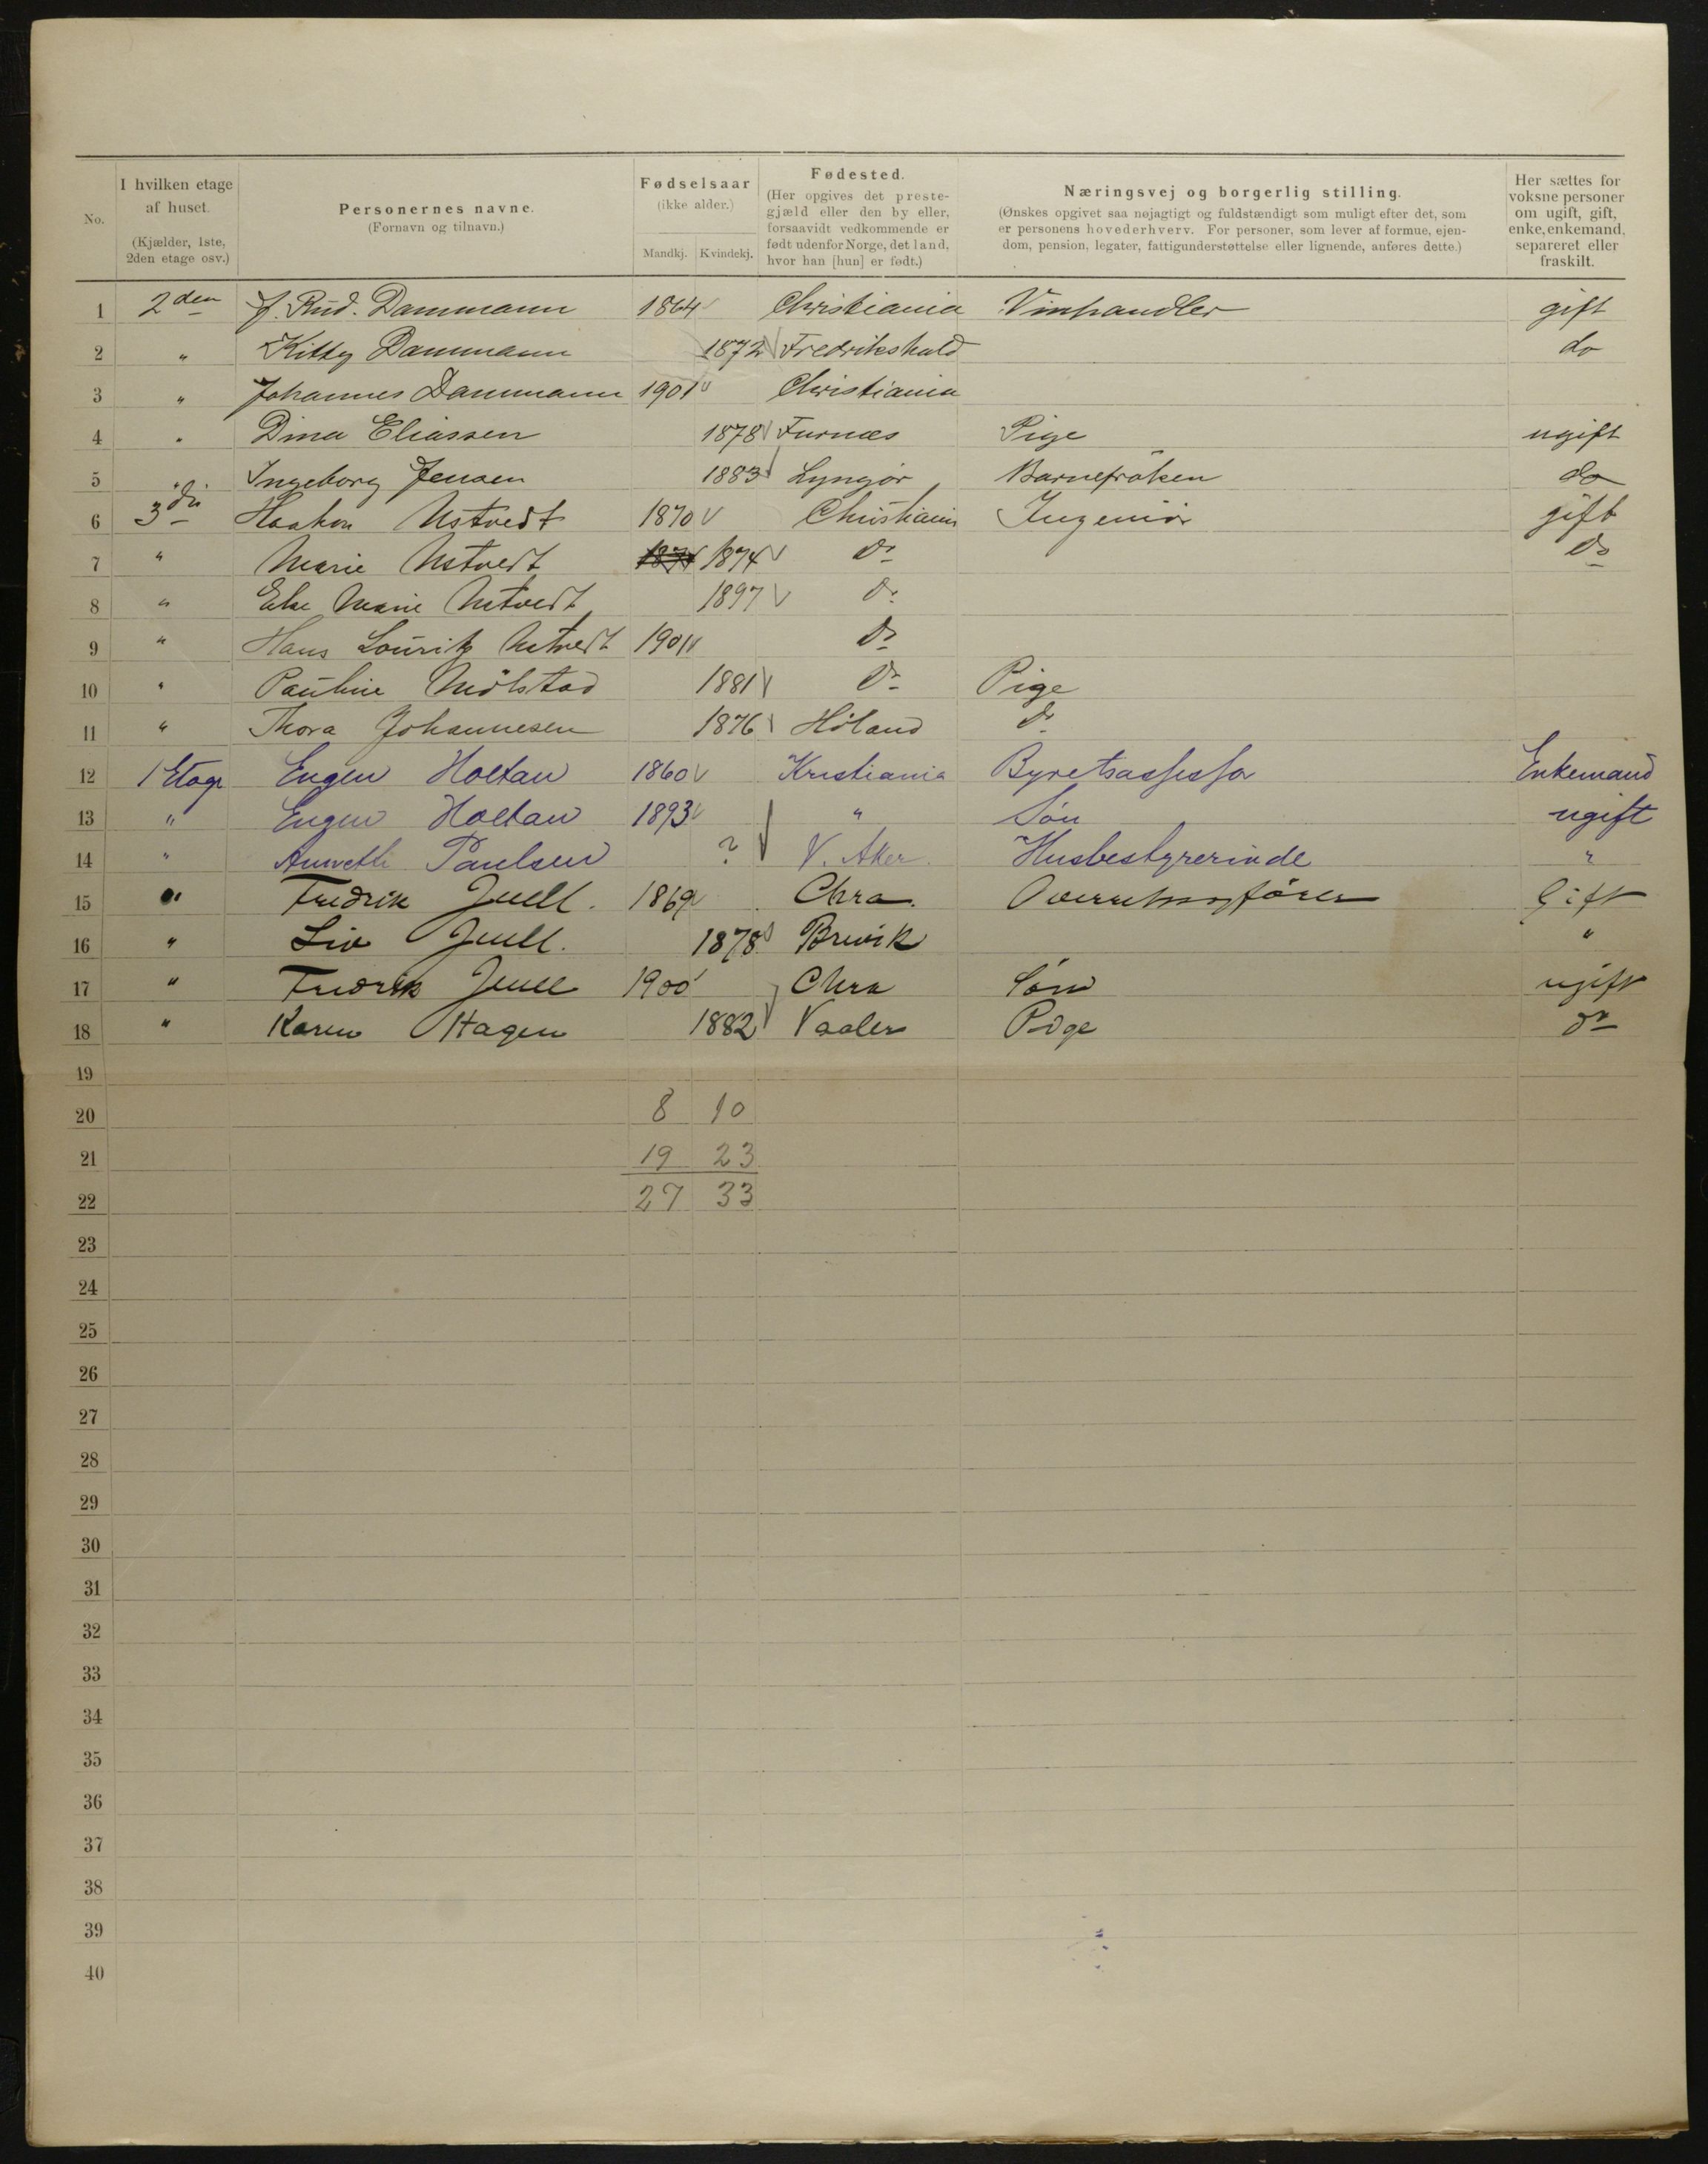 No.
I hvilken etage af huset. (Kjælder, 1ste, 2den etage osv.)
Personernes navne. (Fornavn og tilnavn.)
Fødselsaar (ikke alder.) Mandkj. Kvindekj.
Fødested. (Her opgives det prestegjæld eller den by eller, forsaavidt vedkommende er født udenfor Norge, det land, hvor han [hun] er født.)
Næringsvej og borgerlig stilling. (Ønskes opgivet saa nøjagtigt og fuldstændigt som muligt efter det, som er personens hovederhverv. For personer, som lever af formue, ejendom, pension, legater, fattigunderstøttelse eller lignende, anføres dette.)
Her sættes for voksne personer om ugift, gift, enke, enkemand, separeret eller fraskilt.
1 2den J. Rud. Dammann 1864 Christiania Vinhandler gift
2 " Kitty Dammann 1872 Fredrikshald do
3 " Johannes Dammann 1901 Christiania
4 " Dina Eliassen 1878 Furnæs Pige ugift
5 " Ingeborg Jensen 1883 Lyngør Barnefrøken do
6 3die Haakon Ustvedt 1870 Christiania Ingeniør gift
7 " Marie Ustvedt 1874 1874 do do
8 " Else Marie Ustvedt 1897 do
9 " Hans Louritz Ustvedt 1901 do
10 " Pauline Mølstad 1881 do Pige
11 " Thora Johannesen 1876 Høland do
12 1 Etage Eugen Holtan 1860 Kristiania Byretsassessor Enkemand
13 " Eugen Holtan 1893 " Søn ugift
14 " Annette Paulsen ? V. Aker. Husbestyrerinde "
15 " Fredrik Juell. 1869 Chra. Overretssagfører Gift
16 " Liv Juell. 1878 Brevik "
17 " Fredrik Juell 1900 Chra Søn ugift
18 " Karen Hagen 1882 Vaaler Pige do
19
20 8 10
21 19 23
22 27 33
23
24
25
26
27
28
29
30
31
32
33
34
35
36
37
38
39
40